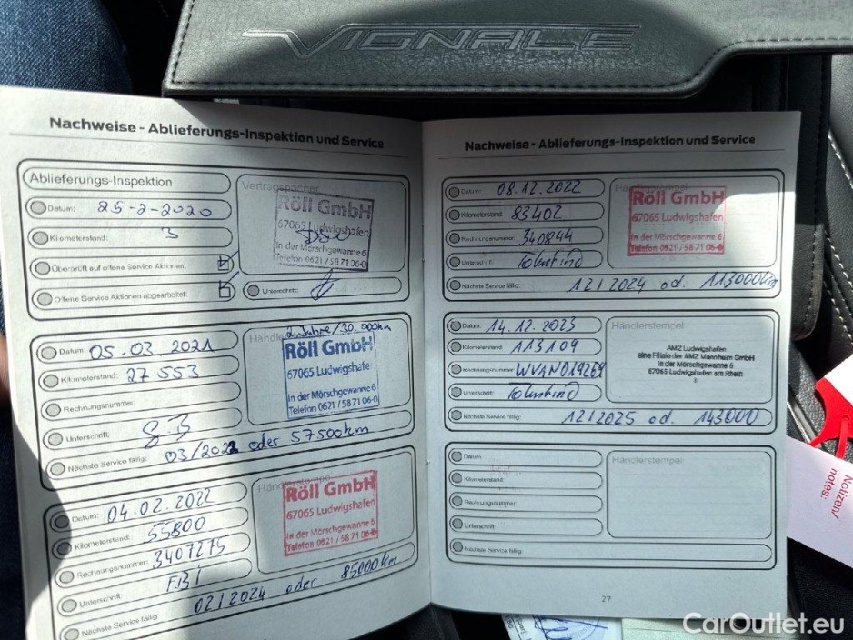 VIGNALE
Nachweise - Ablieferungs-Inspektion und Service
Ablieferungs-Inspektion
Datum: 25-2-2020
Kilometerstand: 3
Überprüft auf offene Service Aktionen:
Offene Service Aktionen abgearbeitet:
Vertragspartner
Röll GmbH
67065 Ludwigshafen
In der Mörschgewanne 6
Telefon 0621 / 58 71 06-0
Unterschrift:
Datum: 05.03 2021
Kilometerstand: 27 553
Rechnungsnummer:
Unterschrift:
Nächste Service fällig: 03/2022 oder 57500km
2 Jahre / 30.000km
Röll GmbH
67065 Ludwigshafe
In der Mörschgewanne 6
Telefon 0621 / 58 71 06-0
Datum: 04.02.2022
Kilometerstand: 55800
Rechnungsnummer: 3407275
Unterschrift:
Nächste Service fällig: 02/2024 oder 85000km
Röll GmbH
67065 Ludwigshafen
In der Mörschgewanne 6
Telefon 0621 / 58 71 06-0
Nachweise - Ablieferungs-Inspektion und Service
Datum: 08.12.2022
Kilometerstand: 83402
Rechnungsnummer: 340844
Unterschrift:
Nächste Service fällig: 12/2024 od. 113000km
Röll GmbH
67065 Ludwigshafen
In der Mörschgewanne 6
Telefon 0621 / 58 71 06-0
Datum: 14.12.2023
Kilometerstand: 113109
Rechnungsnummer: WVAN019269
Unterschrift:
Nächste Service fällig: 12/2025 od. 143000
Händlerstempel
AMZ Ludwigshafen
eine Filiale der AMZ Mannheim GmbH
In der Mörschgewanne 6
67065 Ludwigshafen am Rhein
Datum:
Kilometerstand:
Rechnungsnummer:
Unterschrift:
Nächste Service fällig:
Händlerstempel
27
Notizen/
notes:
CarOutlet.eu